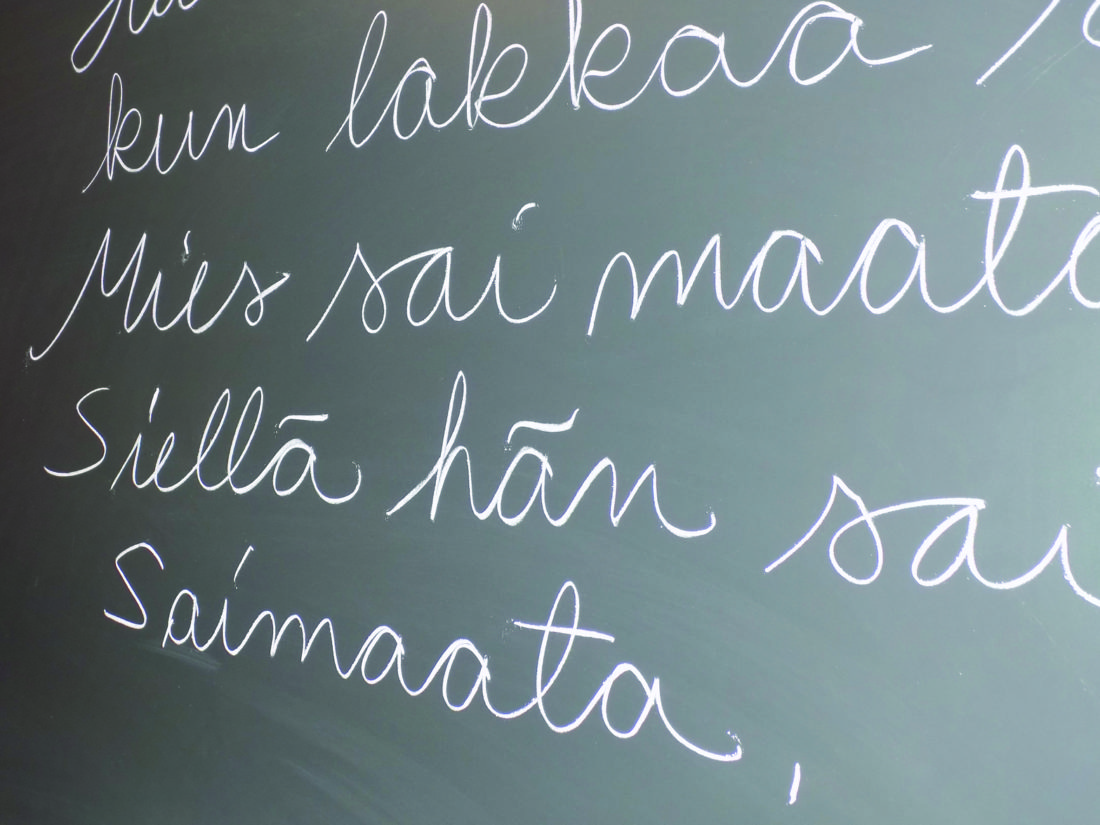 kun lakkaa
Mies sai maata
Siellä hän sai
Saimaata,